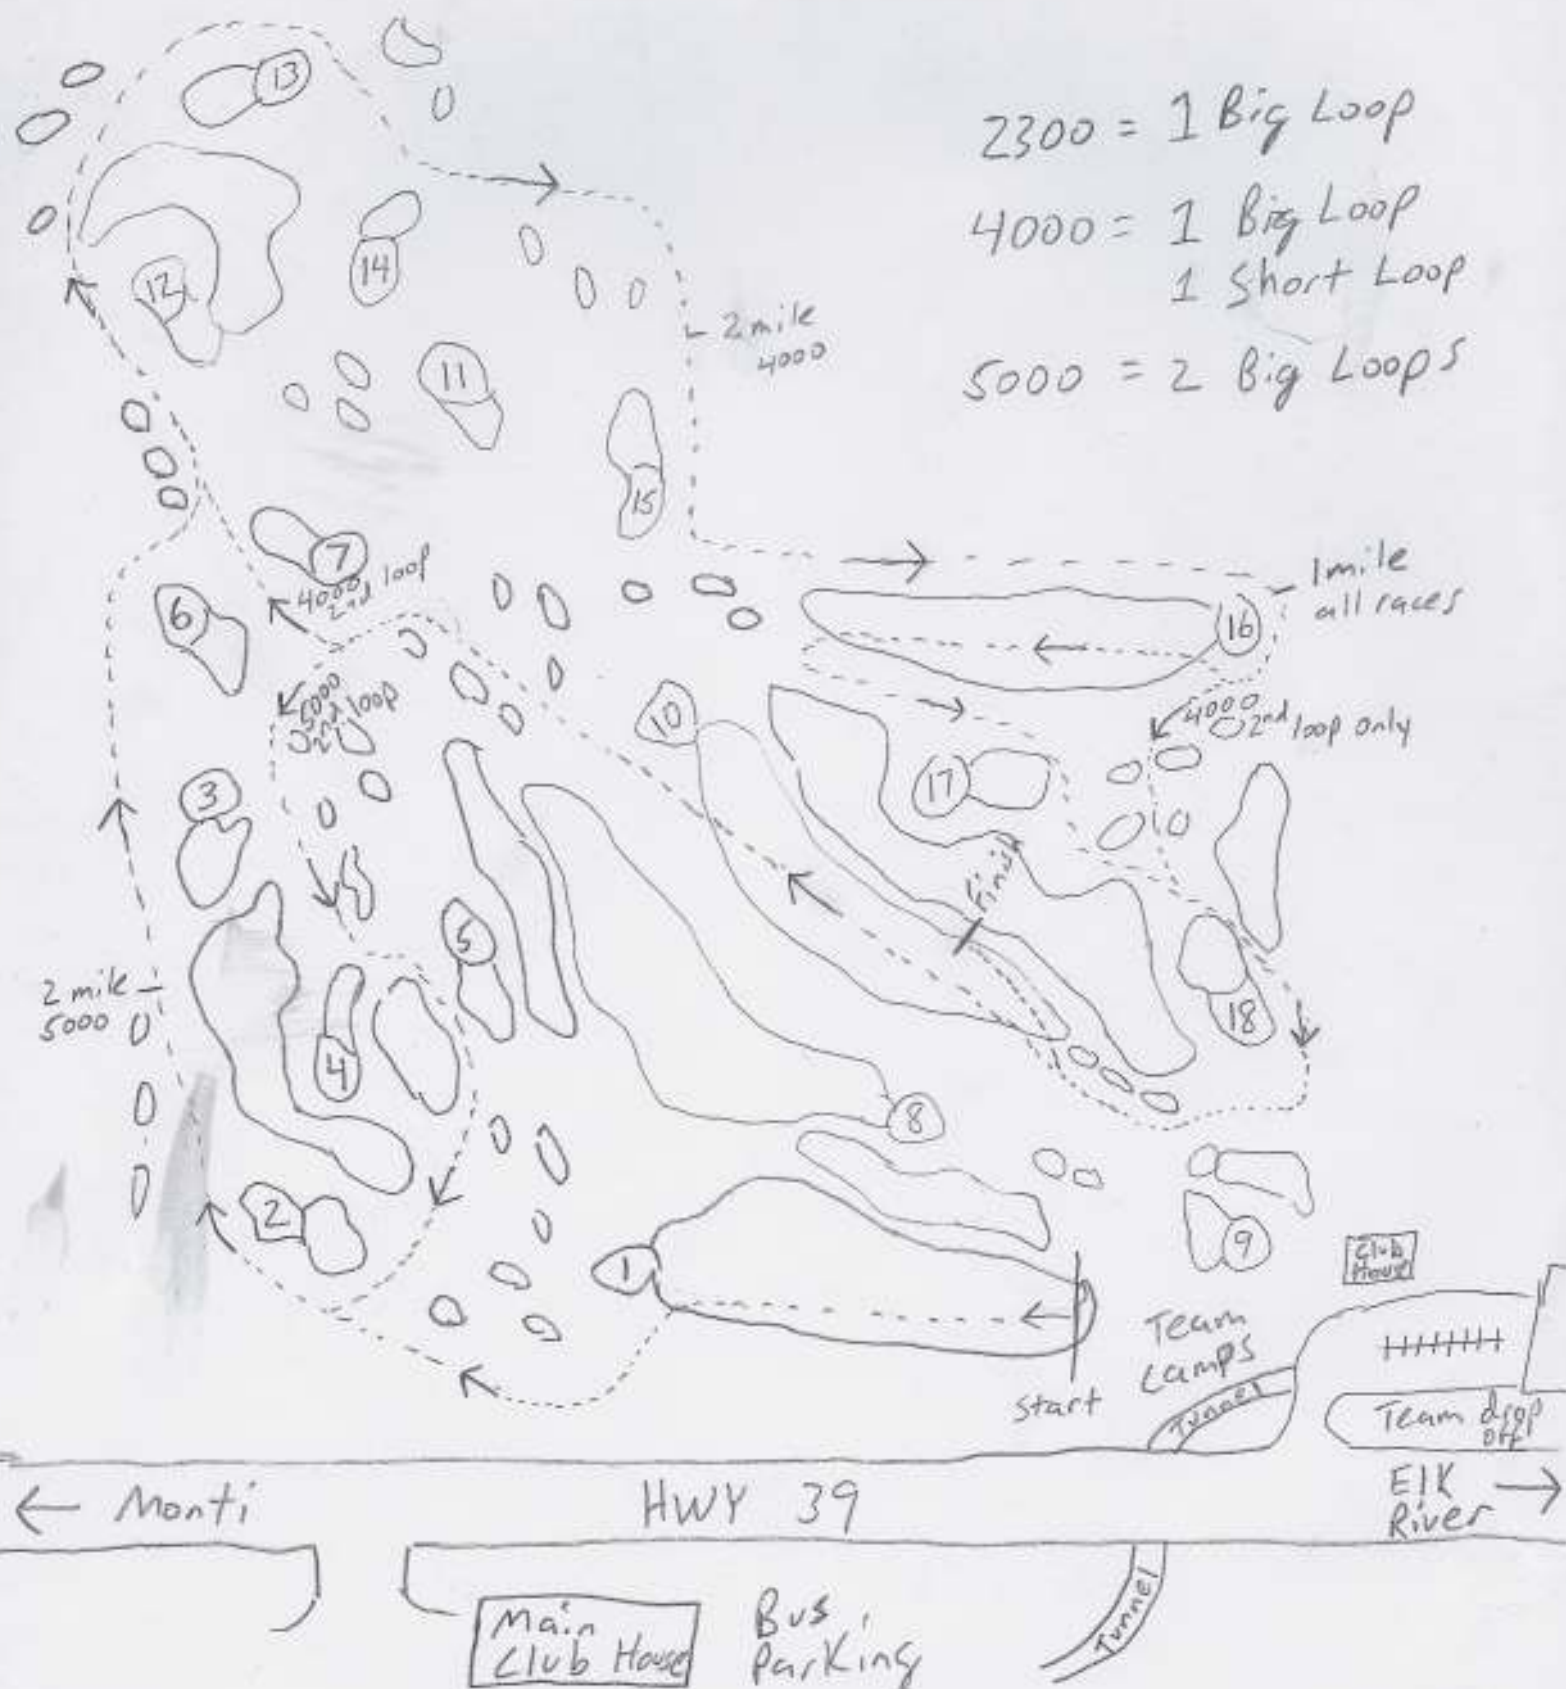 2300 = 1 Big Loop
4000 = 1 Big Loop
1 Short Loop
5000 = 2 Big Loops
13
12
14
2 mile
4000
11
15
7
4000
2nd loop
6
1 mile
all races
16
5000
2nd loop
10
4000
2nd loop only
17
3
Finish
5
2 mile
5000
4
18
8
2
9
1
Club
House
Team
Camps
Start
Tunnel
Team drop
off
← Monti
HWY 39
Elk →
River
Main
Club House
Bus
Parking
Tunnel